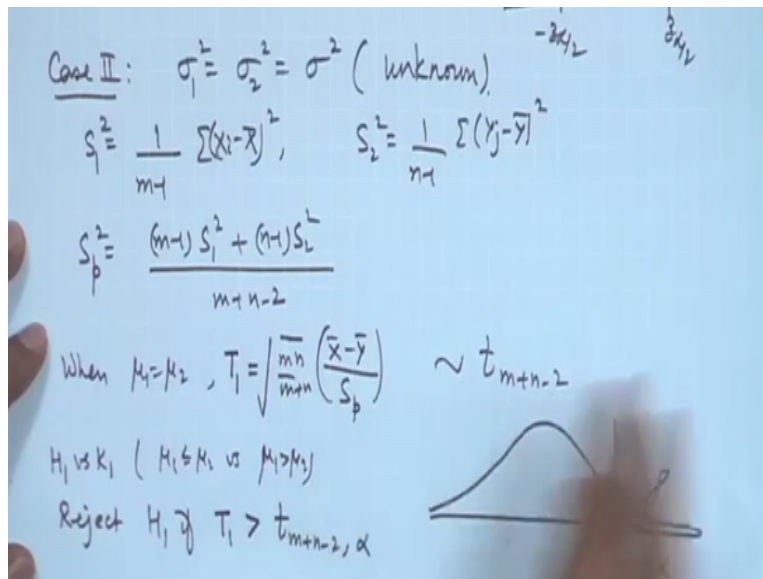 -z_{α/2} z_{α/2}
Case II: σ₁² = σ₂² = σ² ( unknown).
S₁² = 1/(m-1) Σ(Xi-X̄)², S₂² = 1/(n-1) Σ(Yj-Ȳ)²
S_p² = ((m-1) S₁² + (n-1) S₂²)/(m+n-2)
When μ₁=μ₂, T₁ = √(mn/(m+n)) ((X̄-Ȳ)/S_p) ~ t_{m+n-2}
H₁ vs K₁ ( μ₁≤μ₂ vs μ₁>μ₂)
Reject H₁ if T₁ > t_{m+n-2, α}